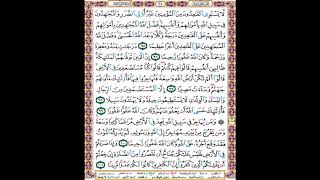 لَّا يَسْتَوِي الْقَاعِدُونَ مِنَ الْمُؤْمِنِينَ غَيْرُ أُولِي الضَّرَرِ وَالْمُجَاهِدُونَ
فِي سَبِيلِ اللَّهِ بِأَمْوَالِهِمْ وَأَنفُسِهِمْ فَضَّلَ اللَّهُ الْمُجَاهِدِينَ بِأَمْوَالِهِمْ
وَأَنفُسِهِمْ عَلَى الْقَاعِدِينَ دَرَجَةً وَكُلًّا وَعَدَ اللَّهُ الْحُسْنَىٰ وَفَضَّلَ اللَّهُ
الْمُجَاهِدِينَ عَلَى الْقَاعِدِينَ أَجْرًا عَظِيمًا دَرَجَاتٍ مِّنْهُ وَمَغْفِرَةً
وَرَحْمَةً وَكَانَ اللَّهُ غَفُورًا رَّحِيمًا إِنَّ الَّذِينَ تَوَفَّاهُمُ الْمَلَائِكَةُ
ظَالِمِي أَنفُسِهِمْ قَالُوا فِيمَ كُنتُمْ قَالُوا كُنَّا مُسْتَضْعَفِينَ فِي الْأَرْضِ
قَالُوا أَلَمْ تَكُنْ أَرْضُ اللَّهِ وَاسِعَةً فَتُهَاجِرُوا فِيهَا فَأُولَٰئِكَ مَأْوَاهُمْ
جَهَنَّمُ وَسَاءَتْ مَصِيرًا إِلَّا الْمُسْتَضْعَفِينَ مِنَ الرِّجَالِ
وَالنِّسَاءِ وَالْوِلْدَانِ لَا يَسْتَطِيعُونَ حِيلَةً وَلَا يَهْتَدُونَ سَبِيلًا
فَأُولَٰئِكَ عَسَى اللَّهُ أَن يَعْفُوَ عَنْهُمْ وَكَانَ اللَّهُ عَفُوًّا غَفُورًا
وَمَن يُهَاجِرْ فِي سَبِيلِ اللَّهِ يَجِدْ فِي الْأَرْضِ مُرَاغَمًا كَثِيرًا وَسَعَةً
وَمَن يَخْرُجْ مِن بَيْتِهِ مُهَاجِرًا إِلَى اللَّهِ وَرَسُولِهِ ثُمَّ يُدْرِكْهُ الْمَوْتُ
فَقَدْ وَقَعَ أَجْرُهُ عَلَى اللَّهِ وَكَانَ اللَّهُ غَفُورًا رَّحِيمًا وَإِذَا ضَرَبْتُمْ
فِي الْأَرْضِ فَلَيْسَ عَلَيْكُمْ جُنَاحٌ أَن تَقْصُرُوا مِنَ الصَّلَاةِ إِنْ خِفْتُمْ
أَن يَفْتِنَكُمُ الَّذِينَ كَفَرُوا إِنَّ الْكَافِرِينَ كَانُوا لَكُمْ عَدُوًّا مُّبِينًا